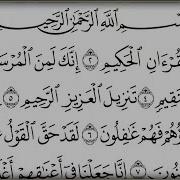 سْمِ ٱللَّهِ ٱلرَّحْمَٰنِ ٱلرَّحِيمِ
لْقُرْءَانِ ٱلْحَكِيمِ ٢ إِنَّكَ لَمِنَ ٱلْمُرْسَ
تَقِيمٍ ٤ تَنزِيلَ ٱلْعَزِيزِ ٱلرَّحِيمِ ٥
ؤُهُمْ فَهُمْ غَٰفِلُونَ ٦ لَقَدْ حَقَّ ٱلْقَوْلُ عَ
ونَ ٧ إِنَّا جَعَلْنَا فِىٓ أَعْنَٰقِهِمْ